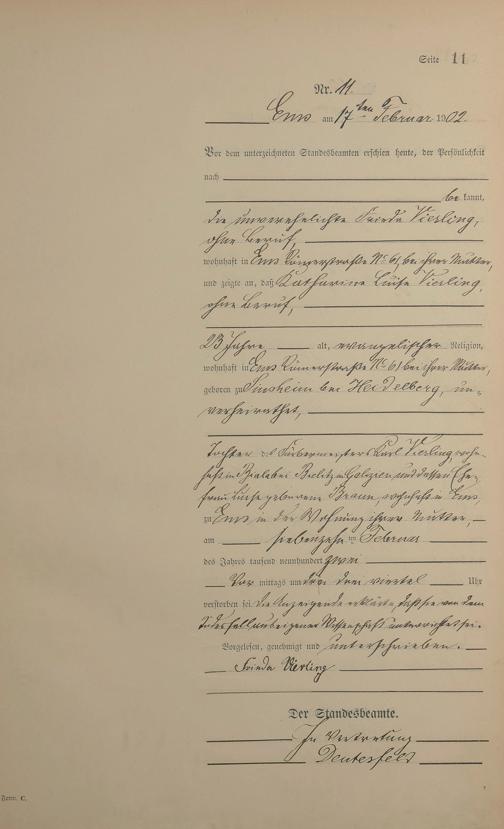 Seite 11
Nr. 11.
Ems am 17ten Februar 1902.
Vor dem unterzeichneten Standesbeamten erschien heute, der Persönlichkeit
nach
bekannt,
die unverehelichte Frieda Vierling,
ohne Beruf,
wohnhaft in Ems Römerstraße No 61, bei ihrer Mutter,
und zeigte an, daß Katharine Luise Vierling,
ohne Beruf,
23 Jahre alt, evangelischer Religion,
wohnhaft in Ems Römerstraße No 61 bei ihrer Mutter,
geboren zu Sinsheim bei Heidelberg, un-
verheirathet,
Tochter des Färbermeisters Karl Vierling, wohn-
haft in Biala bei Bielitz in Galizien, und dessen Ehe-
frau Luise geborene Braun, wohnhaft in Ems,
zu Ems in der Wohnung ihrer Mutter,
am siebenzehn ten Februar
des Jahres tausend neunhundert zwei
Vor mittags um drei viertel Uhr
verstorben sei. Die Anzeigende erklärte, daß sie von dem
Todesfall aus eigener Wissenschaft unterrichtet sei.
Vorgelesen, genehmigt und unterschrieben.
Frieda Vierling
Der Standesbeamte.
In Vertretung
Form. C.